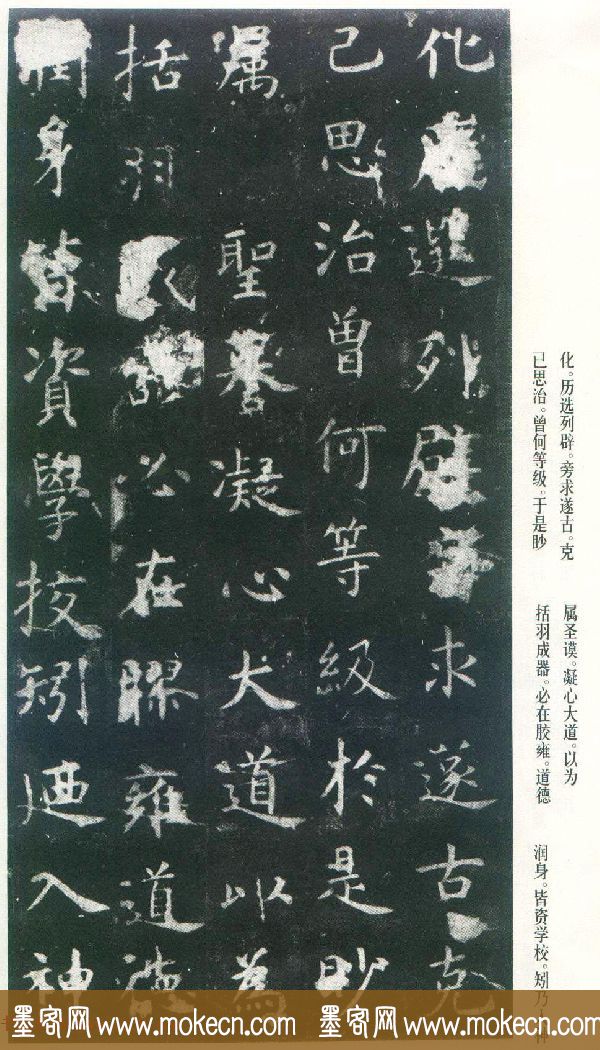 化歷選列辟旁求遂古克
己思治曾何等級於是眇
属聖謩凝心大道以為
括羽成器必在膠雍道德
潤身皆資學挍矧迺入神
化。历选列辟。旁求遂古。克
已思治。曾何等级。于是眇
属圣谟。凝心大道。以为
括羽成器。必在胶雍。道德
润身。皆资学校。矧乃
墨客网 www.mokecn.com 墨客网 www.mokecn.com